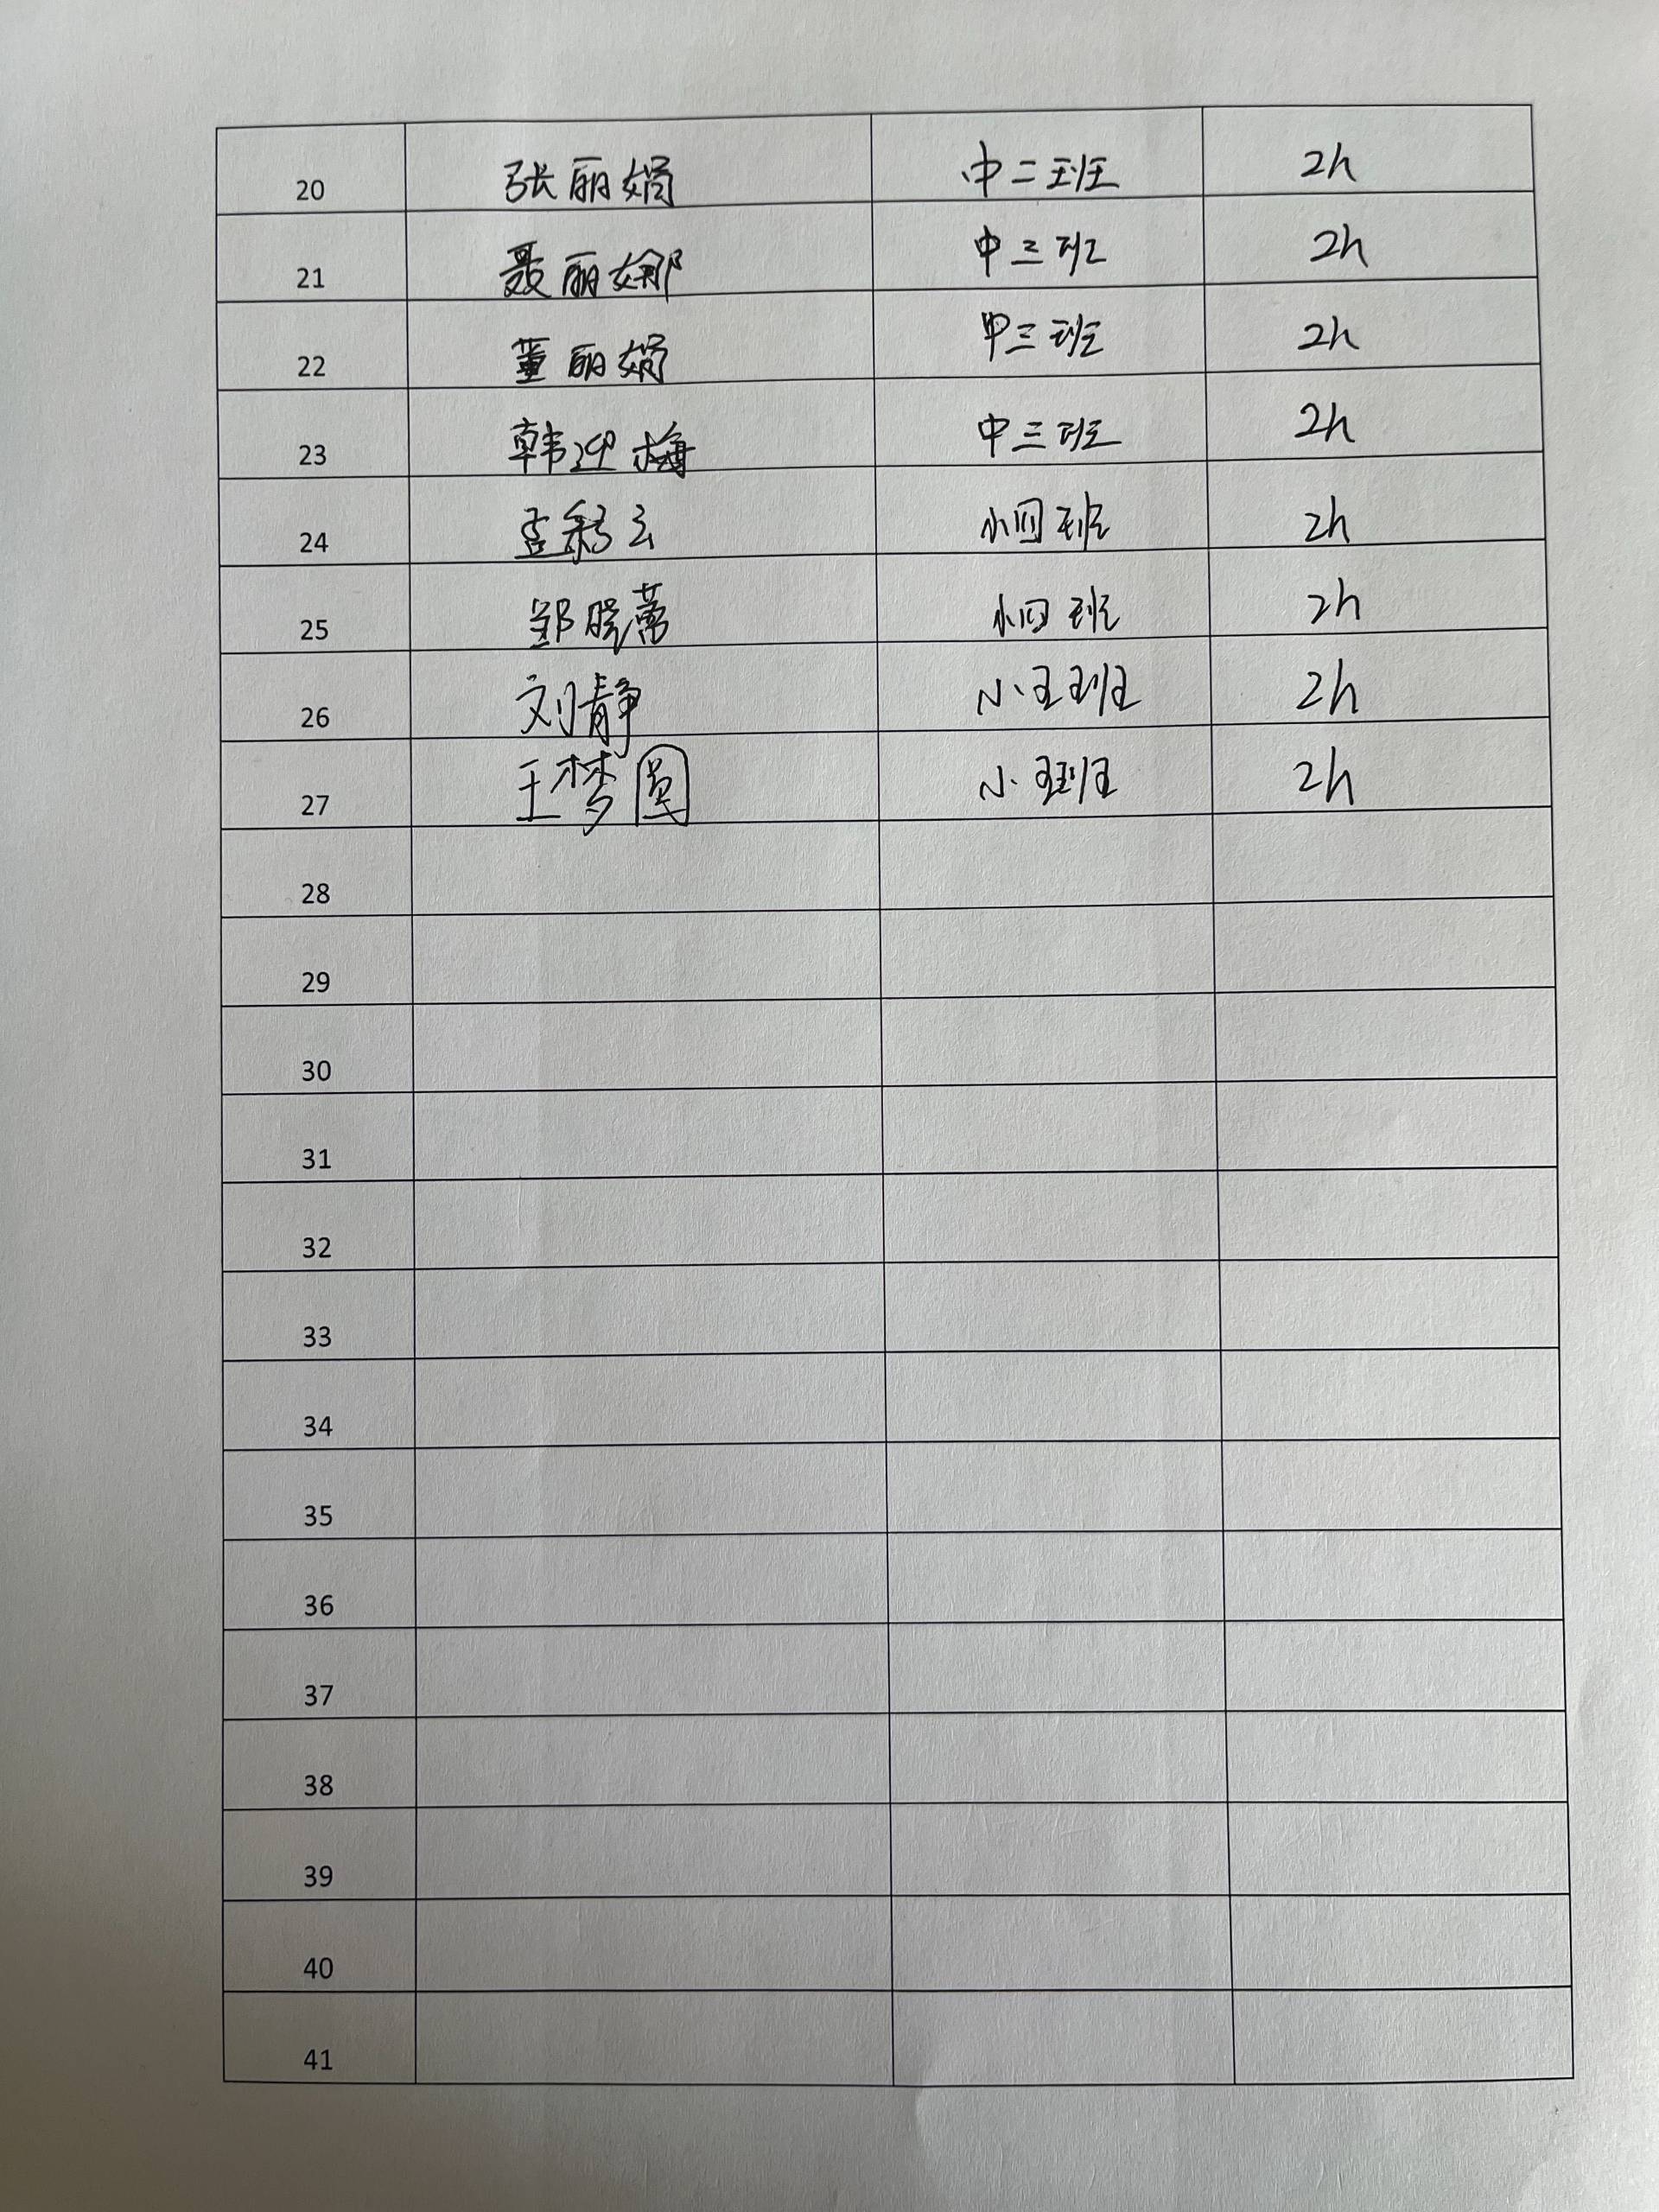 20 张丽娟 中二班 2h
21 聂丽娜 中三班 2h
22 董丽娟 中三班 2h
23 韩迎梅 中三班 2h
24 孟彩云 小四班 2h
25 邹晓 小四班 2h
26 刘静 小五班 2h
27 王梦圆 小五班 2h
28
29
30
31
32
33
34
35
36
37
38
39
40
41